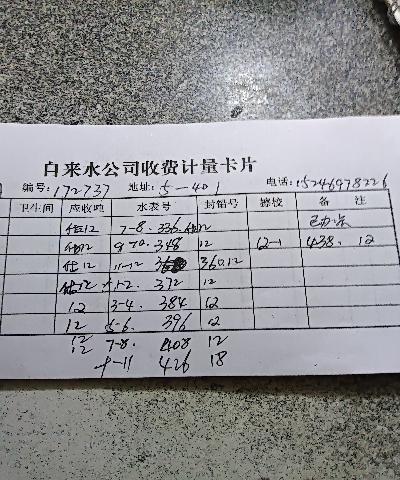 自来水公司收费计量卡片
编号: 172737 地址: 5-401 电话: 15246978226
卫生间 应收吨 水表号 封铅号 掾校 备 注
12 7-8. 336.
12 9-10. 348 12 12-1 438. 12
12 11-12 360.12
12 1-2. 372 12
12 3-4. 384 12
12 5-6. 396 12
12 7-8. 408 12
12 9-11 426 18